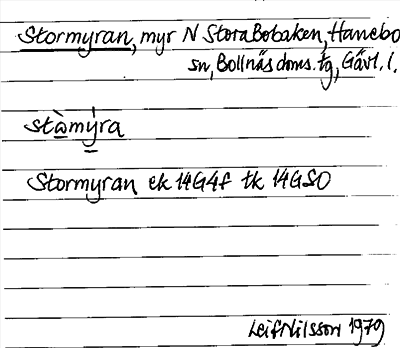 Stormyran, myr N Stora Bobaken, Hanebo
sn, Bollnäs doms. tg, Gävl. l.
stὰmýra
Stormyran ek 14G4f tk 14GSO
Leif Nilsson 1979